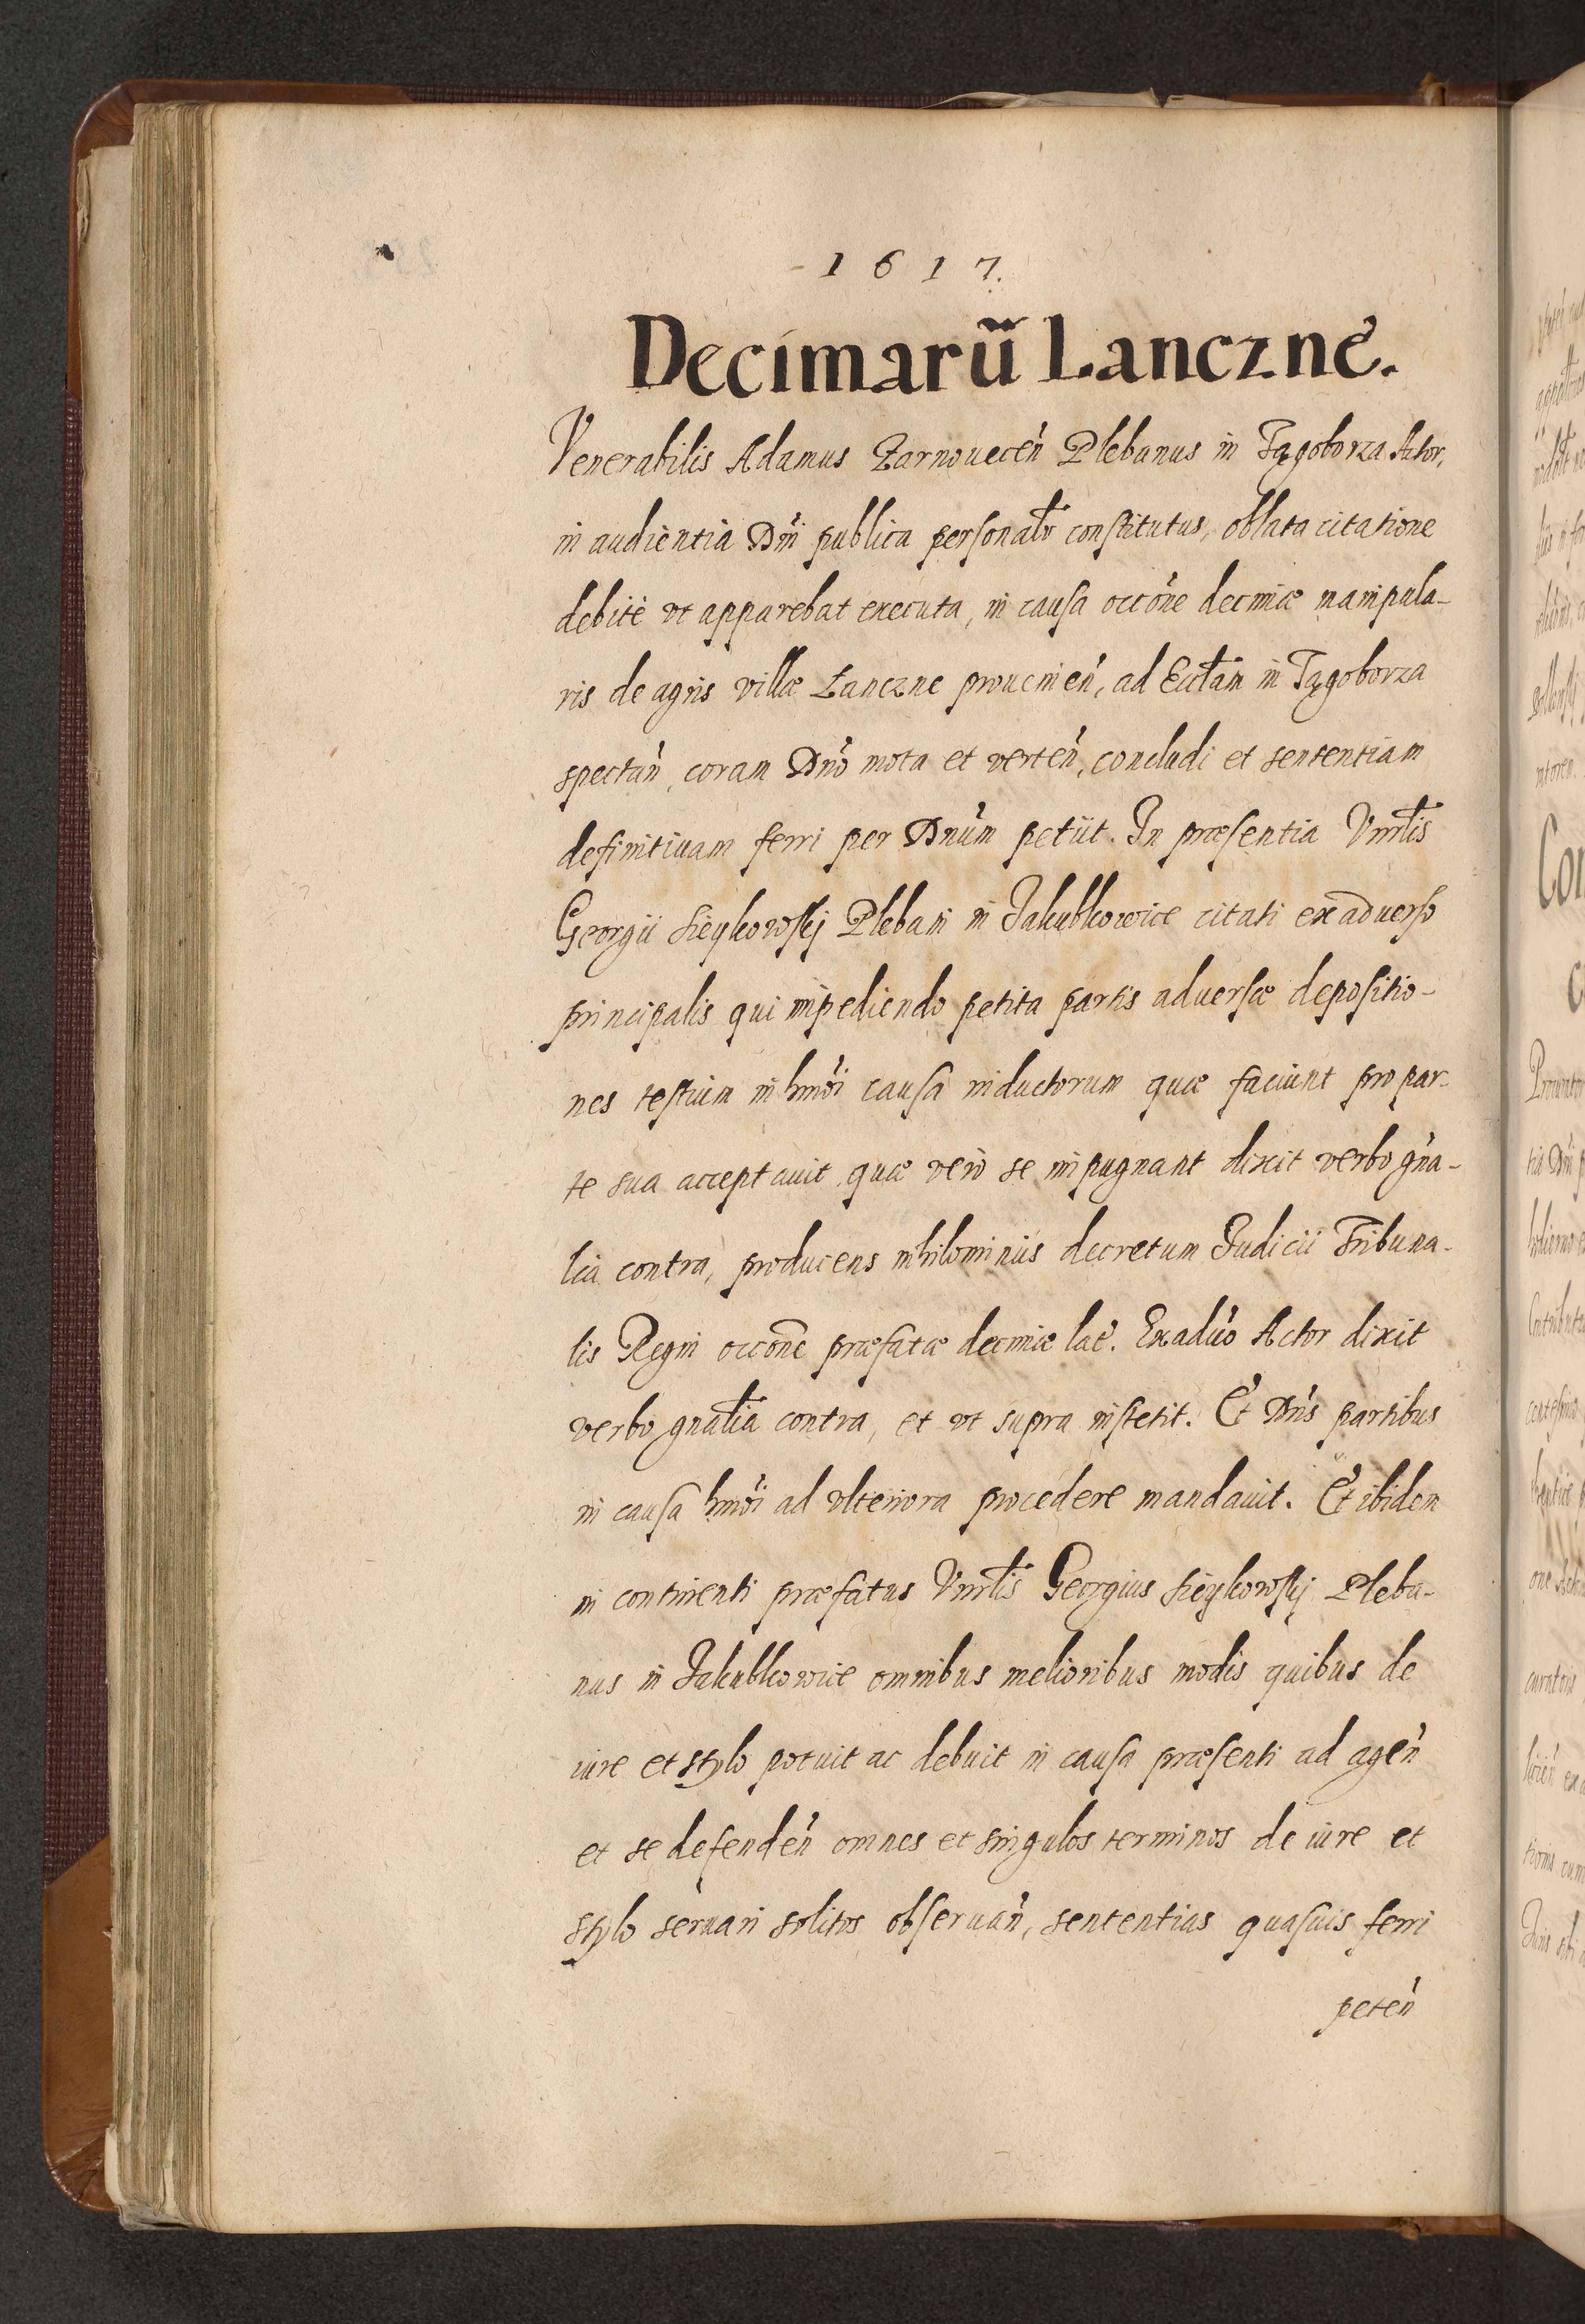 1617.
Decimarũ Lanczne.
Venerabilis Adamus Zarnouecen̄ Plebanus in Tągoborza Actor,
in audientia Dnī publica personalr̄ constitutus, oblata citatione
debitè vt apparebat executa, in causa occōne decimæ manipula-
ris de agris villæ Łanczne prouenien̄, ad Ecclām in Tągoborza
spectan̄, coram Dnō mota et verten̄, concludi et sententiam
definitiuam ferri per Dnūm petiit. In præsentia Vnrlīs
Georgii Plebani in Jakubkowice citati exaduerso
principalis qui impediendo petita partis aduersæ depositio-
nes testium in hmōi causa inductorum quæ faciunt pro par-
te sua acceptauit, quæ verò se impugnant dixit verbo gn̄a-
lia contra, producens nihilominùs decretum Judicii Tribuna-
lis Regni occōne præfatæ decimæ lat̄. Exadūo Actor dixit
verbo gnālia contra, et vt supra institit. Et Dnūs partibus
in causa hmōi ad vlteriora procedere mandauit. Et ibidem
in continenti præfatus Vnrlīs Georgius Pleba-
nus in Jakubkowice omnibus melioribus modis quibus de
iure et stylo potuit ac debuit in causa præsenti ad agen̄
et se defenden̄ omnes et singulos terminos de iure et
stylo seruari solitos obseruan̄, sententias quasuis ferri
peten̄